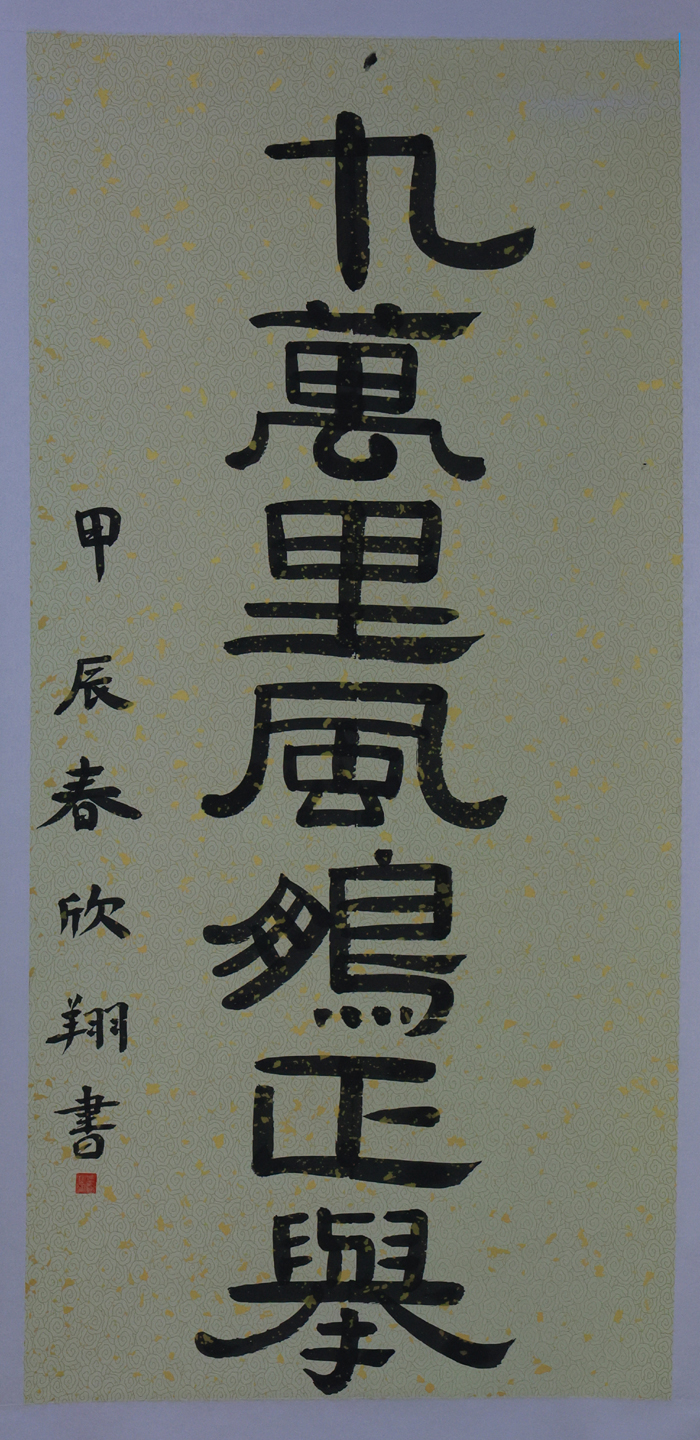 九萬里風鵬正舉
甲辰春欣翔書